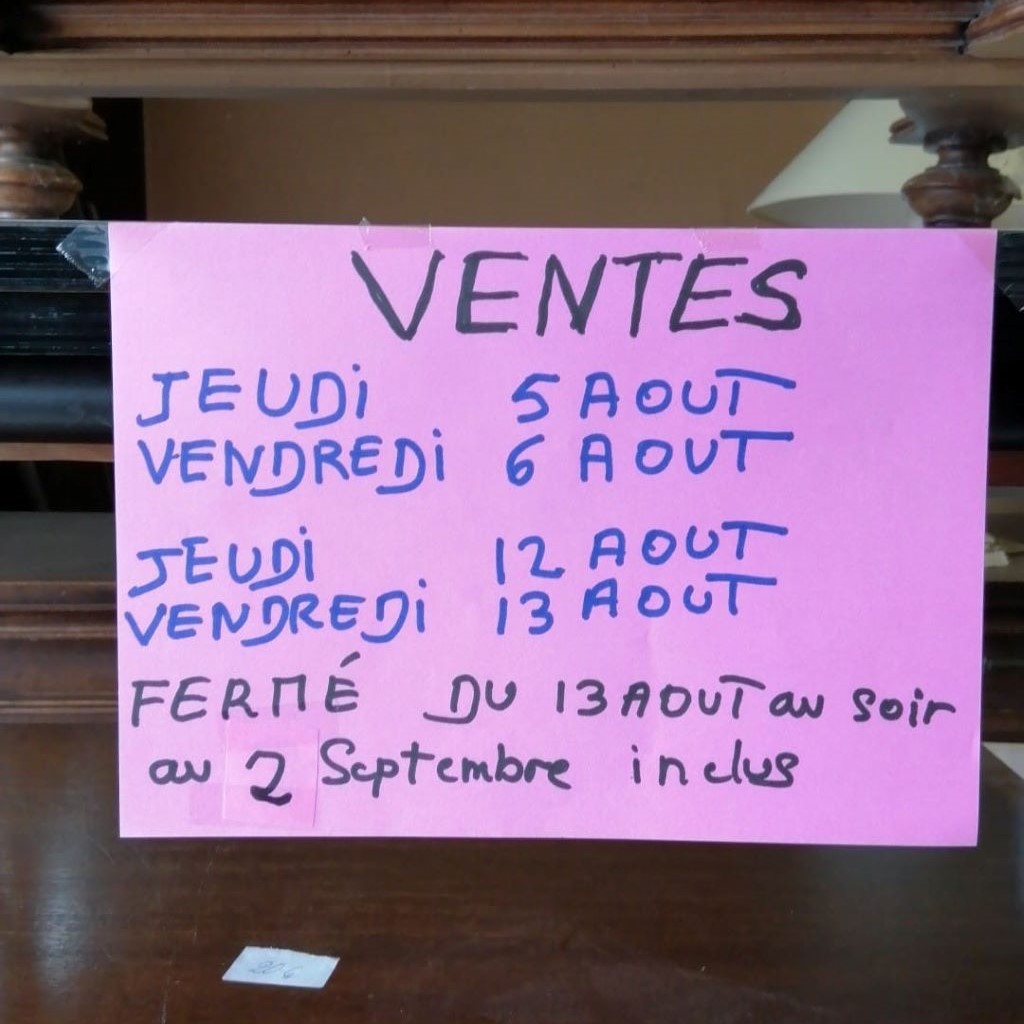 VENTES
JEUDi 5 AOUT
VENDREDi 6 AOUT
JEUDi 12 AOUT
VENDREDi 13 AOUT
FERMÉ DU 13 AOUT au soir
au 2 Septembre inclus